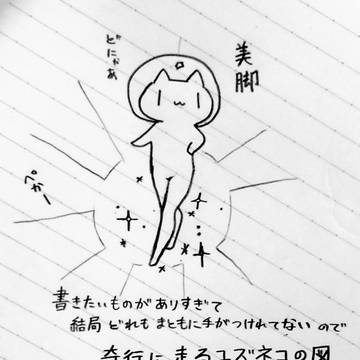 美脚
どにゃあ
ぺかー
書きたいものがありすぎて
結局 どれも まともに手がつけれてない ので
奇行に走るユズネコの図